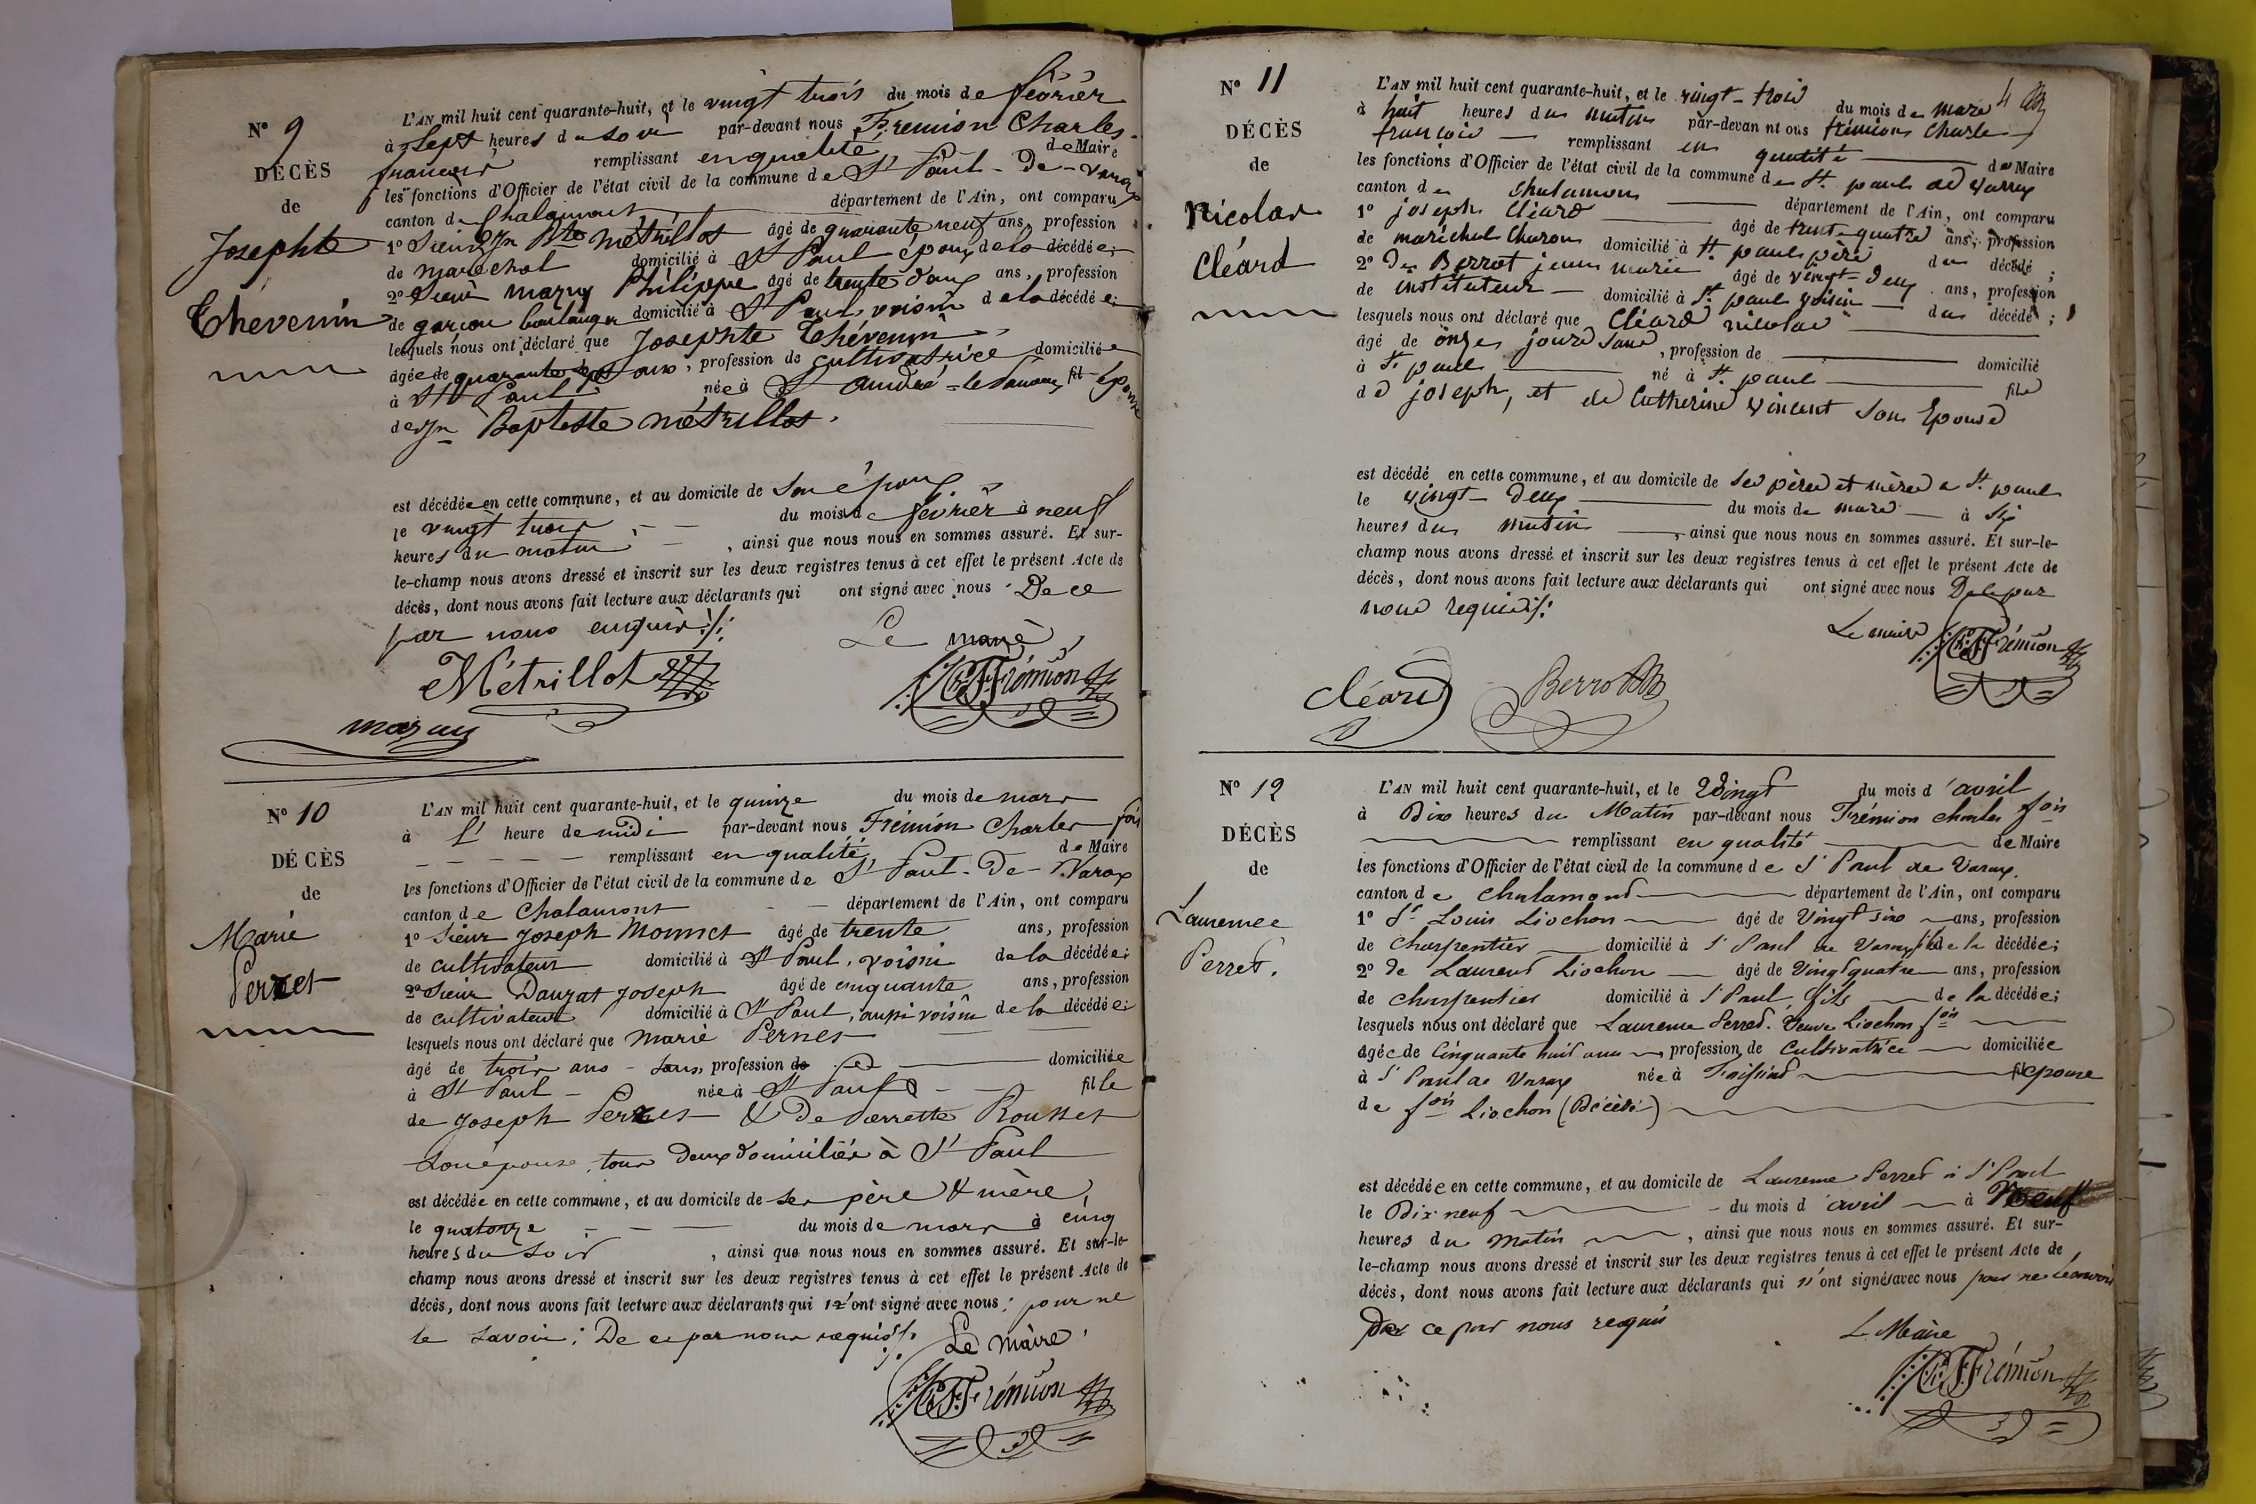 Nº 9
DÉCÈS
de
Josephte
Thévenin
L'AN mil huit cent quarante-huit, et le vingt trois du mois de février
à Sept heures du soir par-devant nous Frémion Charles
françois remplissant en qualité de Maire
les fonctions d'Officier de l'état civil de la commune de St Paul-De-Varax
canton de Chalamont département de l'Ain, ont comparu
1º Sieur Jn Bte Métrillot âgé de quarante neuf ans, profession
de maréchal domicilié à St Paul époux de la décédée;
2º Sieur mazuy Philippe âgé de trente deux ans, profession
de garçon boulanger domicilié à St Paul voisin de la décédée;
lesquels nous ont déclaré que Josephte Thévenin
âgée de quarante sept ans, profession de cultivatrice domiciliée
à St Paul née à St André-le-Panoux fil Epouse
de Jn Baptiste métrillot.
est décédée en cette commune, et au domicile de Son époux
le vingt trois du mois de février à neuf
heures du matin, ainsi que nous nous en sommes assuré. Et sur-
le-champ nous avons dressé et inscrit sur les deux registres tenus à cet effet le présent Acte de
décès, dont nous avons fait lecture aux déclarants qui ont signé avec nous De ce
par nous enquis ./.
Le maire
Métrillot
C F Frémion
mazuy
Nº 10
DÉCÈS
de
Marie
Perret
L'AN mil huit cent quarante-huit, et le quinze du mois de mars
à L' heure de midi par-devant nous Frémion Charles fois
remplissant en qualité de Maire
les fonctions d'Officier de l'état civil de la commune de St Paul-De-Varax
canton de Chalamont département de l'Ain, ont comparu
1º Sieur Joseph Monnet âgé de trente ans, profession
de cultivateur domicilié à St Paul, voisin de la décédée;
2º Sieur Dauzat Joseph âgé de cinquante ans, profession
de cultivateur domicilié à St Paul, aussi voisin de la décédée;
lesquels nous ont déclaré que Marie Perret
âgé de trois ans - sans profession de domiciliée
à St Paul - née à St Paul fille
de Joseph Perret & De Pierrette Rousset
Son épouse, tous deux domiciliés à St Paul
est décédée en cette commune, et au domicile de ses père & mère,
le quatorze du mois de mars à cinq
heures du soir, ainsi que nous nous en sommes assuré. Et sur-le-
champ nous avons dressé et inscrit sur les deux registres tenus à cet effet le présent Acte de
décès, dont nous avons fait lecture aux déclarants qui n'ont signé avec nous; pour ne
le savoir; De ce par nous requis ./.
Le maire
C F Frémion
4
Nº 11
DÉCÈS
de
Nicolas
Cléard
L'AN mil huit cent quarante-huit, et le vingt-trois du mois de mars
à huit heures du matin par-devan nt ous frémion Charles
françois remplissant en qualité de Maire
les fonctions d'Officier de l'état civil de la commune de St. paul de varax
canton de Chalamon département de l'Ain, ont comparu
1º joseph Cléard âgé de trent-quatre ans, profession
de maréchal Charon domicilié à St. paul père du décédé;
2º De Berrot jean marie âgé de vingt-deux ans, profession
de instituteur domicilié à St. paul voisin du décédé;
lesquels nous ont déclaré que Cléard nicolas
âgé de onze jours sans, profession de domicilié
à St. paul né à St. paul fils
de joseph, et de Catherine vincent son Epouse
est décédé en cette commune, et au domicile de ses père et mère a St. paul
le vingt-deux du mois de mars à Six
heures du matin, ainsi que nous nous en sommes assuré. Et sur-le-
champ nous avons dressé et inscrit sur les deux registres tenus à cet effet le présent Acte de
décès, dont nous avons fait lecture aux déclarants qui ont signé avec nous De ce par
nous requis ./.
Le maire
C F Frémion
Cléard
Berrot
Nº 12
DÉCÈS
de
Laurence
Perret.
L'AN mil huit cent quarante-huit, et le Vingt du mois d'avril
à Dix heures du Matin par-devant nous Frémion charles fois
remplissant en qualité de Maire
les fonctions d'Officier de l'état civil de la commune de St Paul de Varax
canton de Chalamont département de l'Ain, ont comparu
1º Sr Louis Liochon âgé de Vingt six ans, profession
de Charpentier domicilié à St Paul de Varax fils de la décédée;
2º de Laurent Liochon âgé de Vingt quatre ans, profession
de charpentier domicilié à St Paul fils de la décédée;
lesquels nous ont déclaré que Laurence Perret. Veuve Liochon fois
âgée de Cinquante huit ans profession de Cultivatrice domiciliée
à St Paul de Varax née à fil epouse
de fois Liochon (Décédé)
est décédée en cette commune, et au domicile de Laurence Perret à St Paul
le Dix-neuf du mois d'avril à Neuf
heures du Matin, ainsi que nous nous en sommes assuré. Et sur-
le-champ nous avons dressé et inscrit sur les deux registres tenus à cet effet le présent Acte de
décès, dont nous avons fait lecture aux déclarants qui n'ont signé avec nous pour ne le savoir
De ce par nous requis
Le Maire
C F Frémion